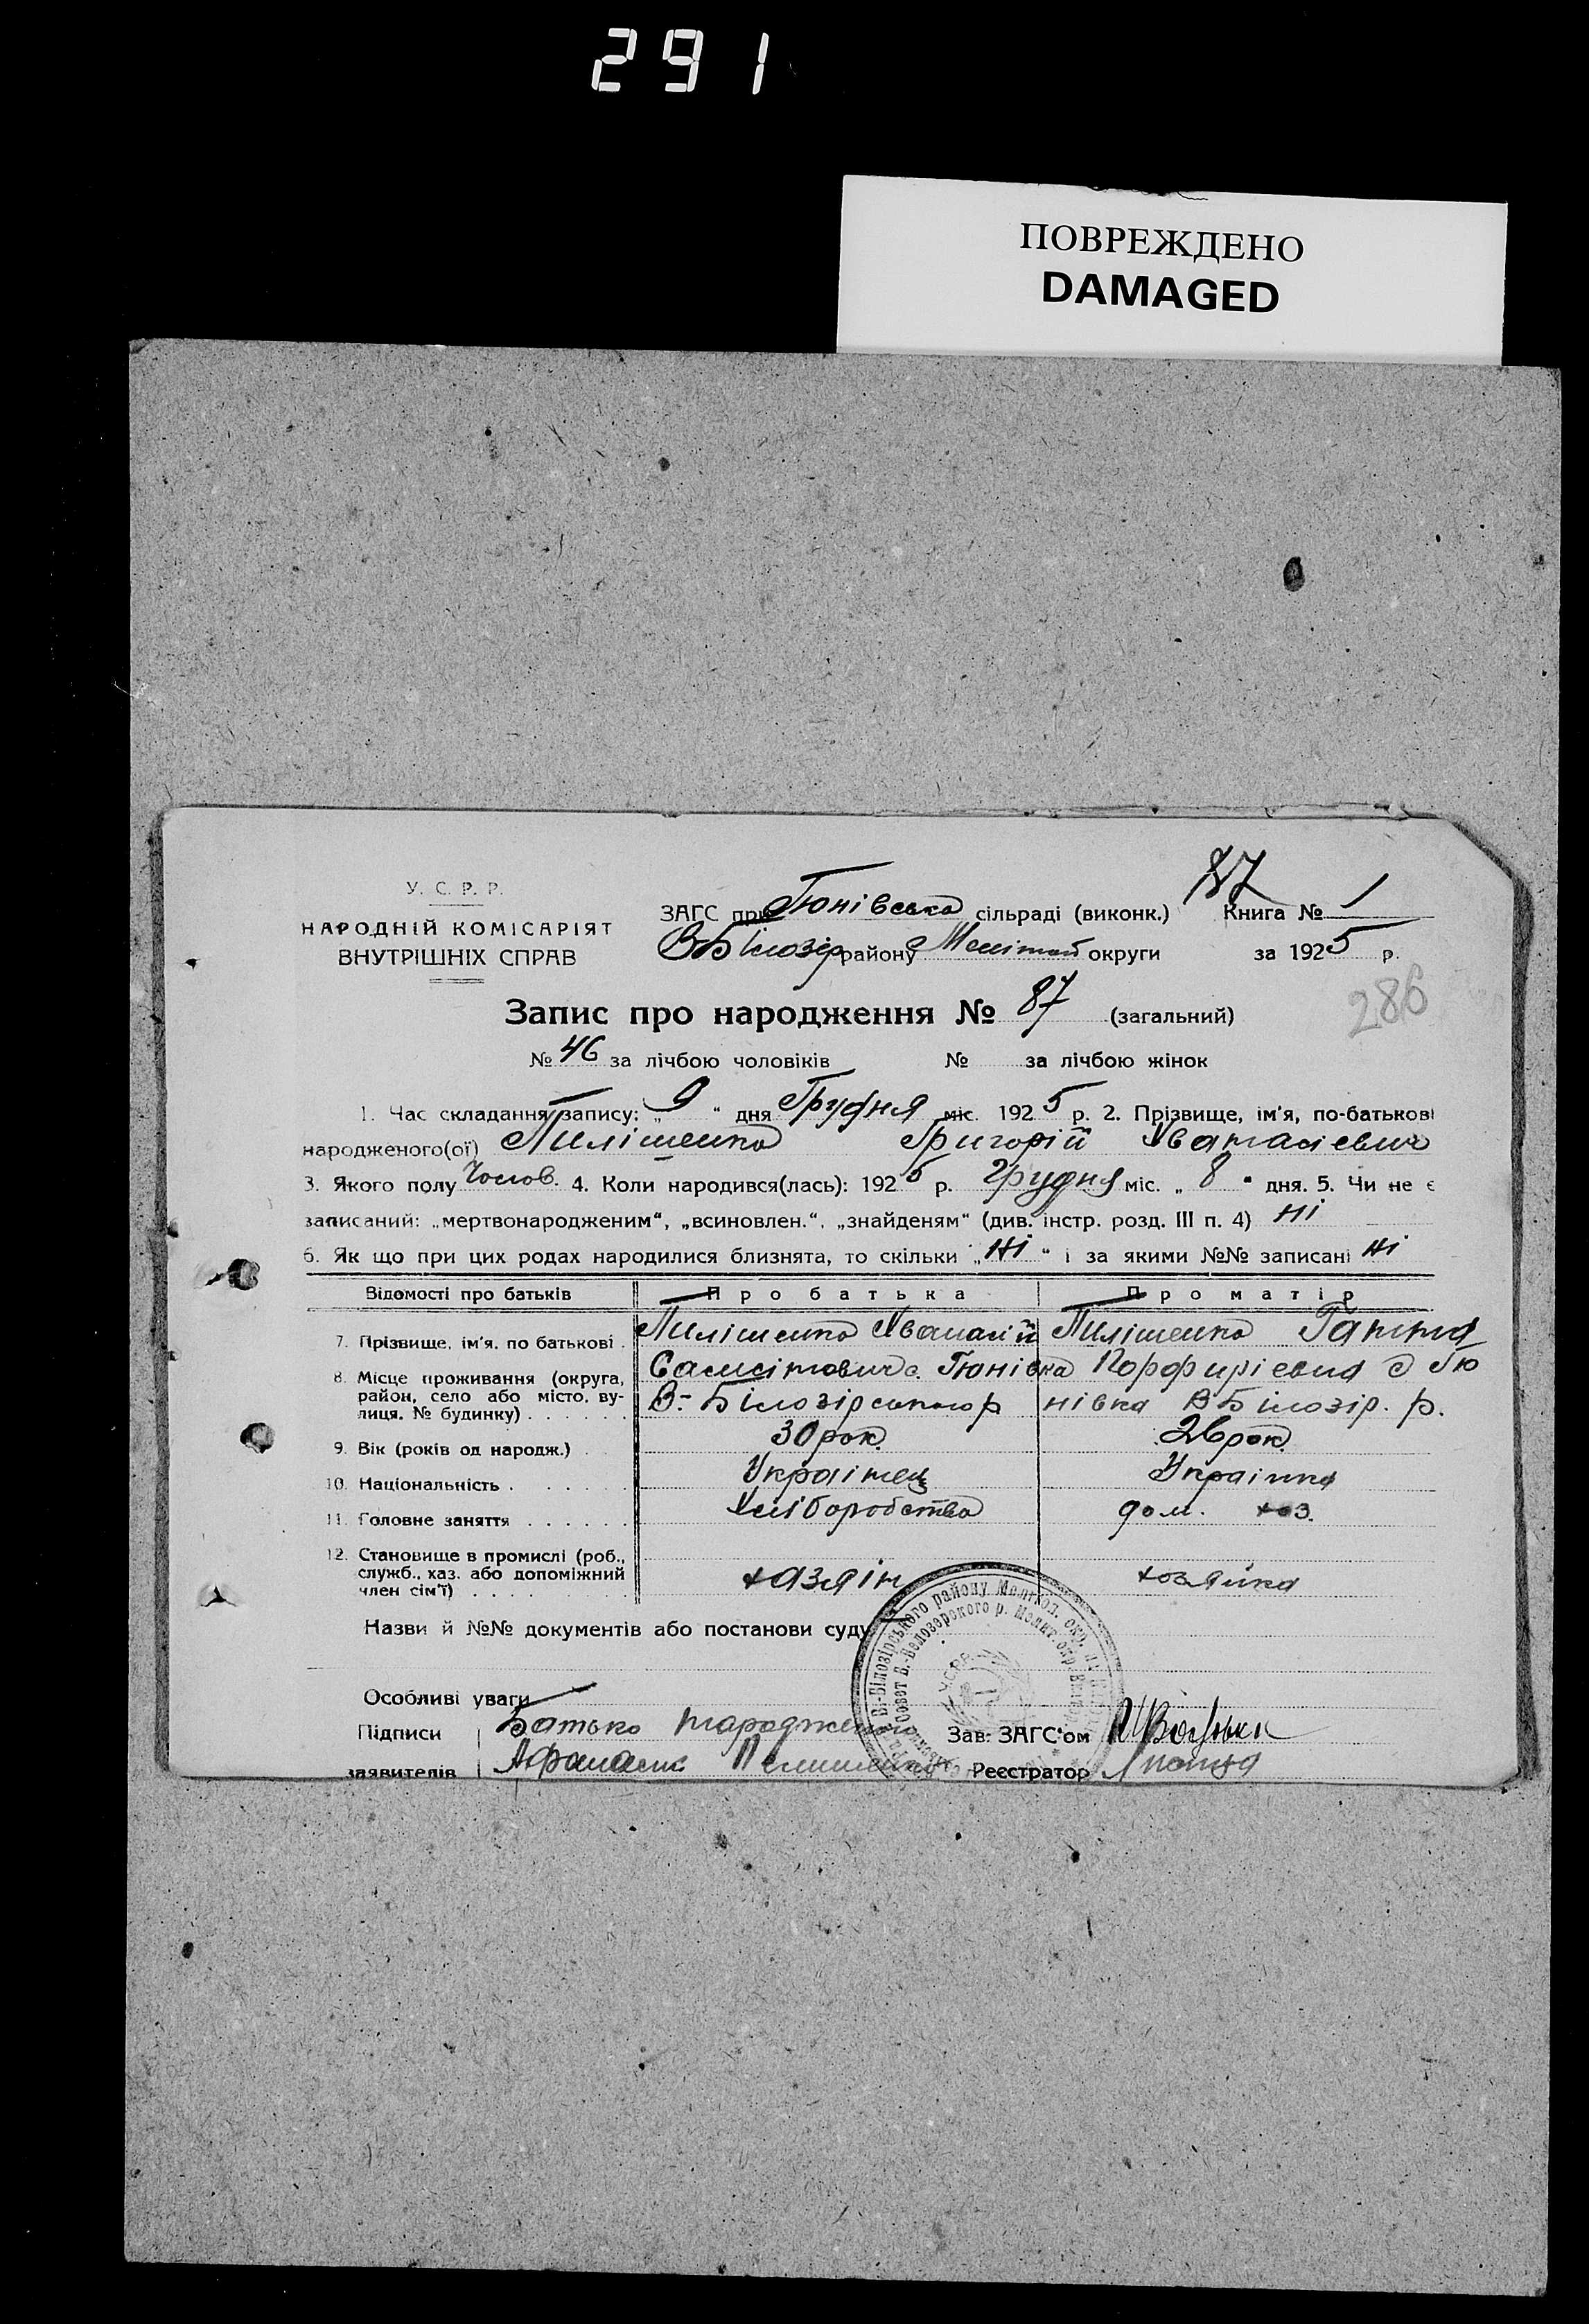 291
ПОВРЕЖДЕНО
DAMAGED
У. С. Р. Р.
НАРОДНІЙ КОМІСАРІЯТ
ВНУТРІШНІХ СПРАВ
87
ЗАГС при Гюнівська сільраді (виконк.) Книга № 1
ВБілозір району Меліт округи за 1925 р.
286
Запис про народження № 87 (загальний)
№ 46 за лічбою чоловіків № за лічбою жінок
1. Час складання запису: „ 9 “ дня Грудня міс. 1925 р. 2. Прізвище, ім'я, по-батькові
народженого(ої) Пилішенко Григорій Хванасіевич
3. Якого полу Чолов. 4. Коли народився(лась): 1925 р. Грудня міс. „ 8 “ дня. 5. Чи не є
записаний: „мертвонародженим“, „всиновлен.“, „знайденям“ (див. інстр. розд. III п. 4) Ні
6. Як що при цих родах народилися близнята, то скільки „ Ні “ і за якими №№ записані Ні
Відомості про батьків Про батька Про матір
7. Прізвище, ім'я, по батькові . Пилішенко Хванасій Пилішенко Ганна
8. Місце проживання (округа, район, село або місто, вулиця, № будинку) . . . . . . с. Гюнівка Порфиріевна с Гю
В-Білозірського р нівка ВБілозір. р.
9. Вік (років од народж.) . 30 рок. 26 рок.
10. Національність . . . . . . Украінец Украінка
11. Головне заняття . . . . . . Хліборобство дом. хоз.
12. Становище в промислі (роб., служб., хаз. або допоміжний член сім'ї) . . . . хазяін хозяйка
Назви й №№ документів або постанови суду
Особливі уваги
Підписи Батько народженого Зав. ЗАГС'ом
заявителів Реєстратор